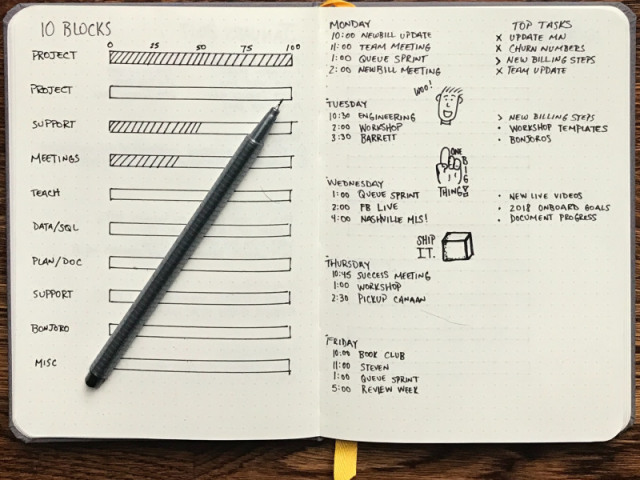 10 BLOCKS
0 25 50 75 100
PROJECT
PROJECT
SUPPORT
MEETINGS
TEACH
DATA/SQL
PLAN/DOC
SUPPORT
BONJORO
MISC
MONDAY
10:00 NEWBILL UPDATE
11:00 TEAM MEETING
1:00 QUEUE SPRINT
2:00 NEWBILL MEETING
TOP TASKS
X UPDATE MN
X CHURN NUMBERS
> NEW BILLING STEPS
X TEAM UPDATE
WOO!
TUESDAY
10:30 ENGINEERING
2:00 WORKSHOP
3:30 BARRETT
> NEW BILLING STEPS
• WORKSHOP TEMPLATES
• BONJOROS
ONE
BIG
THING
WEDNESDAY
1:00 QUEUE SPRINT
2:00 FB LIVE
4:00 NASHVILLE MLS!
• NEW LIVE VIDEOS
• 2018 ONBOARD GOALS
• DOCUMENT PROGRESS
SHIP
IT.
THURSDAY
10:45 SUCCESS MEETING
1:00 WORKSHOP
2:30 PICKUP CANAAN
FRIDAY
10:00 BOOK CLUB
11:00 STEVEN
1:00 QUEUE SPRINT
5:00 REVIEW WEEK